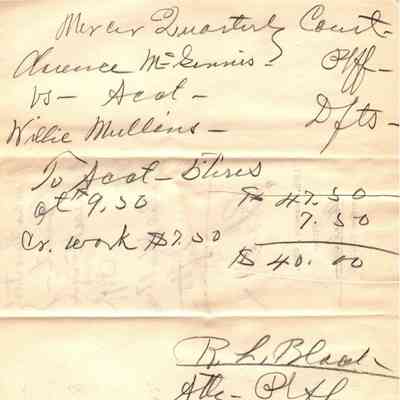 Mercer Quarterly Court-
Clarence McGinnis- Plff-
vs- Acct-
Willie Mullins- Dfts-
To Acct- 5 tires
at $9.50 $47.50
7.50
Cr. work $7.50
$40.00
R. L. Black
Atty- Pltf